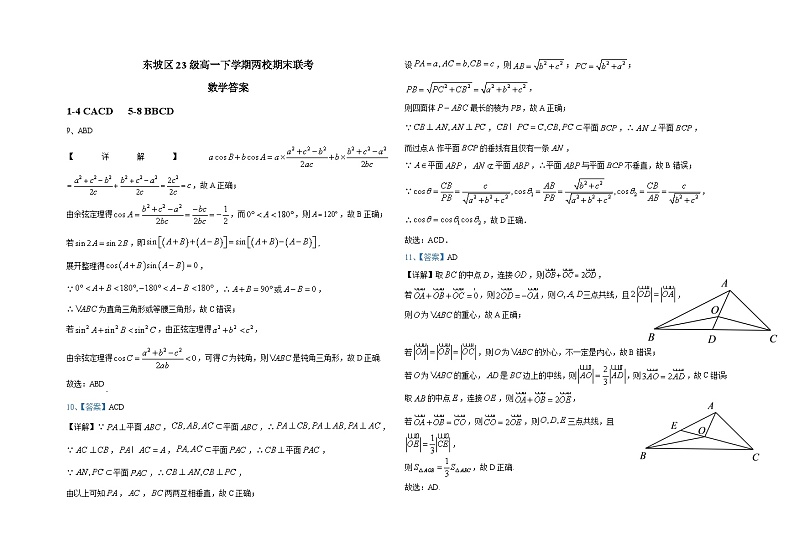 东坡区23级高一下学期两校期末联考
数学答案
1-4 CACD 5-8 BBCD
9、ABD
【详解】a cos B + b cos A = a × (a² + c² − b²)/(2ac) + b × (b² + c² − a²)/(2bc)
= (a² + c² − b²)/(2c) + (b² + c² − a²)/(2c) = 2c²/(2c) = c，故A正确；
由余弦定理得cos A = (b² + c² − a²)/(2bc) = −bc/(2bc) = −1/2，而0° < A < 180°，则A = 120°，故B正确；
若sin 2A = sin 2B，即sin[(A + B) + (A − B)] = sin[(A + B) − (A − B)]，
展开整理得cos(A + B)sin(A − B) = 0，
∵0° < A + B < 180°, −180° < A − B < 180°，∴A + B = 90°或A − B = 0，
∴VABC为直角三角形或等腰三角形，故C错误；
若sin² A + sin² B < sin² C，由正弦定理得a² + b² < c²，
由余弦定理得cos C = (a² + b² − c²)/(2ab) < 0，可得C为钝角，则VABC是钝角三角形，故D正确.
故选：ABD.
10、【答案】ACD
【详解】∵PA⊥平面ABC，CB, AB, AC ⊂平面ABC，∴PA⊥CB, PA⊥AB, PA⊥AC，
∵AC⊥CB，PA I AC = A，PA, AC ⊂平面PAC，∴CB⊥平面PAC，
∵AN, PC ⊂平面PAC，∴CB⊥AN, CB⊥PC，
由以上可知PA，AC，BC两两互相垂直，故C正确；
设PA = a, AC = b, CB = c，则AB = √(b² + c²)；PC = √(b² + a²)；
PB = √(PC² + CB²) = √(a² + b² + c²)，
则四面体P − ABC最长的棱为PB，故A正确；
∵CB⊥AN, AN⊥PC，CB I PC = C, CB, PC ⊂平面BCP，∴AN⊥平面BCP，
而过点A作平面BCP的垂线有且仅有一条AN，
∵A∈平面ABP，AN⊄平面ABP，∴平面ABP与平面BCP不垂直，故B错误；
∵cos θ = CB/PB = c/√(a² + b² + c²), cos θ₁ = AB/PB = √(b² + c²)/√(a² + b² + c²), cos θ₂ = CB/AB = c/√(b² + c²)，
∴cos θ = cos θ₁ cos θ₂，故D正确.
故选：ACD.
11、【答案】AD
【详解】取BC的中点D，连接OD，则OB + OC = 2OD，
若OA + OB + OC = 0，则2OD = −OA，则O, A, D三点共线，且2|OD| = |OA|，
则O为VABC的重心，故A正确；
A
O
B D C
若|OA| = |OB| = |OC|，则O为VABC的外心，不一定是内心，故B错误；
若O为VABC的重心，AD是BC边上的中线，则|AO| = 2/3|AD|，则3AO = 2AD，故C错误；
取AB的中点E，连接OE，则OA + OB = 2OE，
若OA + OB = CO，则CO = 2OE，则O, D, E三点共线，且
|OE| = 1/3|CE|，
则S△AOB = 1/3 S△ABC，故D正确.
A
E
O
B C
故选：AD.